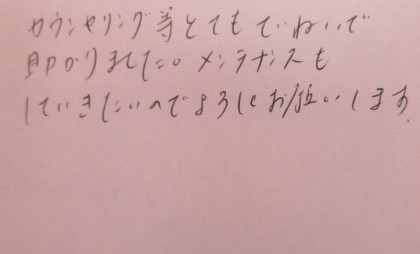 カウンセリング等とてもていねいで
助かりました。メンテナンスも
していきたいのでよろしくお願いします